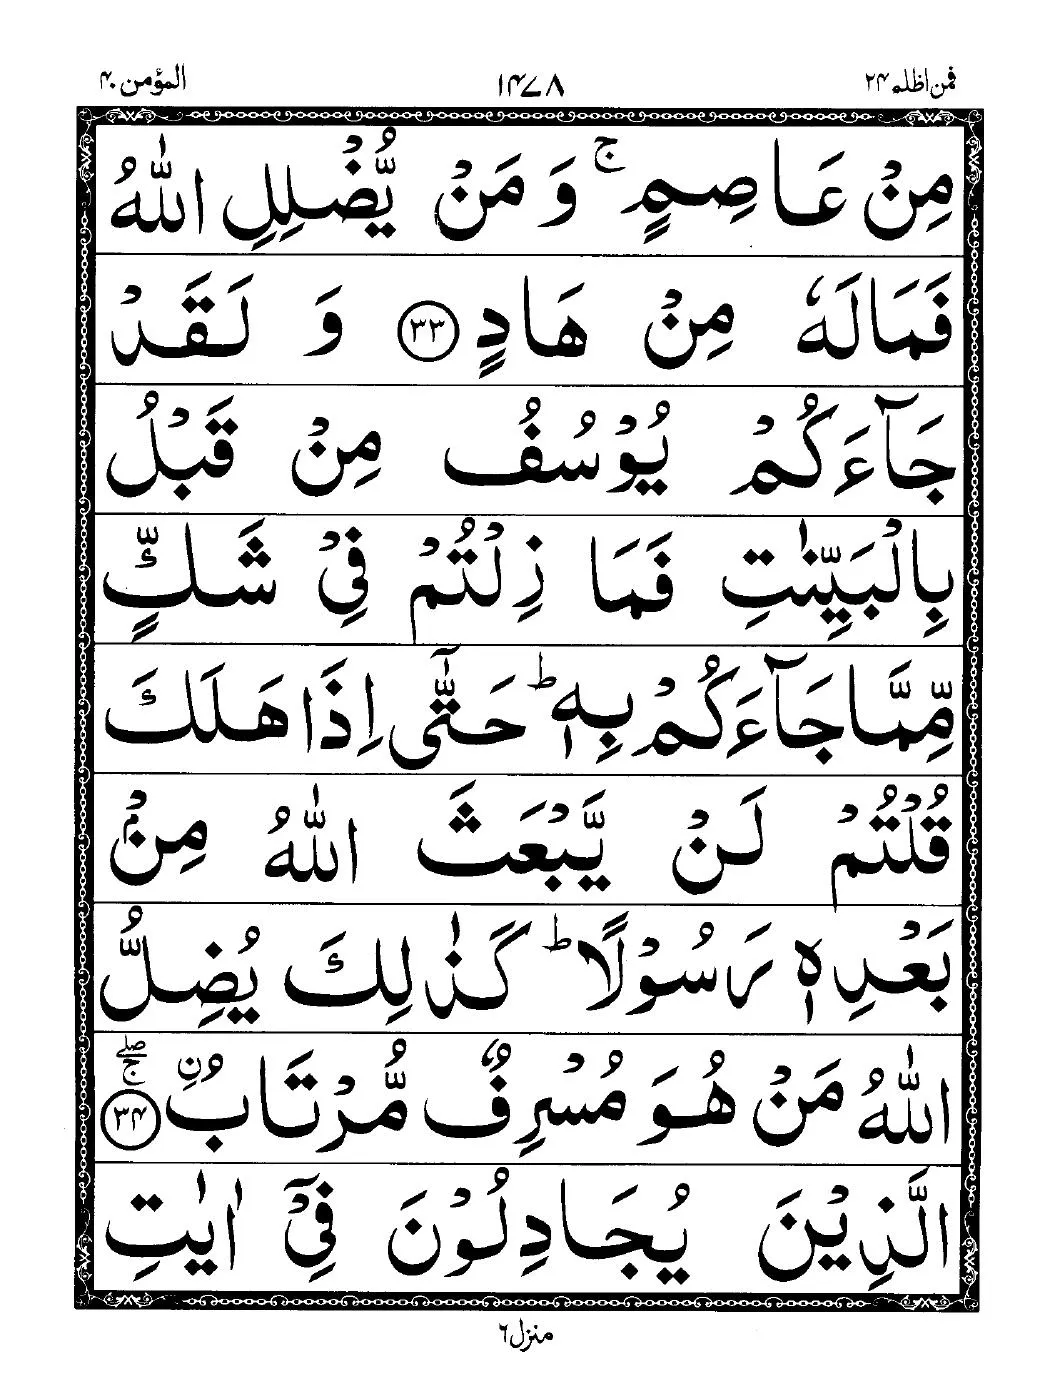 فمن اظلم ٢٤ ١٤٧٨ المؤمن ٤٠
مِنْ عَاصِمٍ ۚ وَ مَنْ يُّضْلِلِ اللّٰهُ
فَمَا لَهٗ مِنْ هَادٍ ﴿٣٣﴾ وَ لَقَدْ
جَآءَكُمْ يُوْسُفُ مِنْ قَبْلُ
بِالْبَيِّنٰتِ فَمَا زِلْتُمْ فِيْ شَكٍّ
مِّمَّا جَآءَكُمْ بِهٖ ؕ حَتّٰۤى اِذَا هَلَكَ
قُلْتُمْ لَنْ يَّبْعَثَ اللّٰهُ مِنْۢ
بَعْدِهٖ رَسُوْلًا ؕ كَذٰلِكَ يُضِلُّ
اللّٰهُ مَنْ هُوَ مُسْرِفٌ مُّرْتَابُ ۨ ﴿٣٤﴾ ۚۖ
الَّذِيْنَ يُجَادِلُوْنَ فِيْۤ اٰيٰتِ
منزل ٦